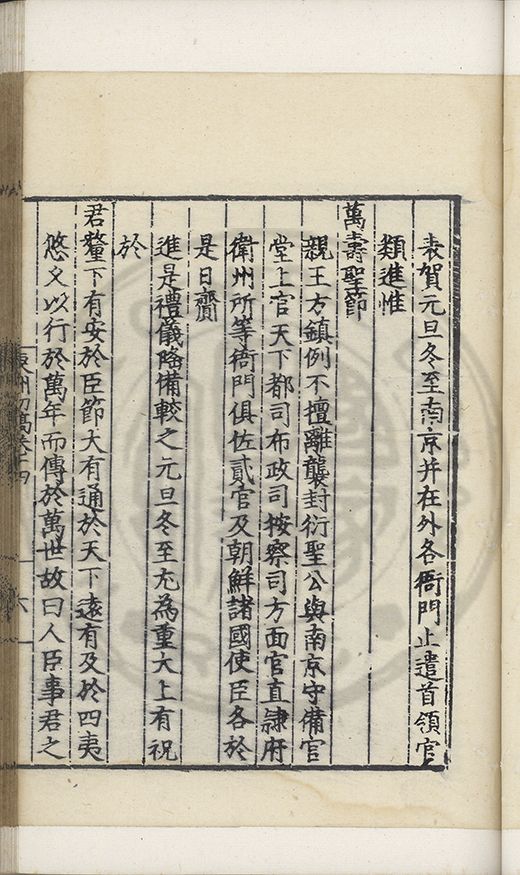 表賀元旦冬至南京并在外各衙門止遣首領官
類進惟
萬壽聖節
親王方鎮例不擅離襲封衍聖公與南京守備官
堂上官天下都司布政司按察司方面官直隷府
衛州所等衙門俱佐貳官及朝鮮諸國使臣各於
是日齎
進是禮儀隆備較之元旦冬至尤為重大上有祝
於
君釐下有安於臣節大有通於天下遠有及於四夷
悠久以行於萬年而傳於萬世故曰人臣事君之
袁州初藁卷十四
六